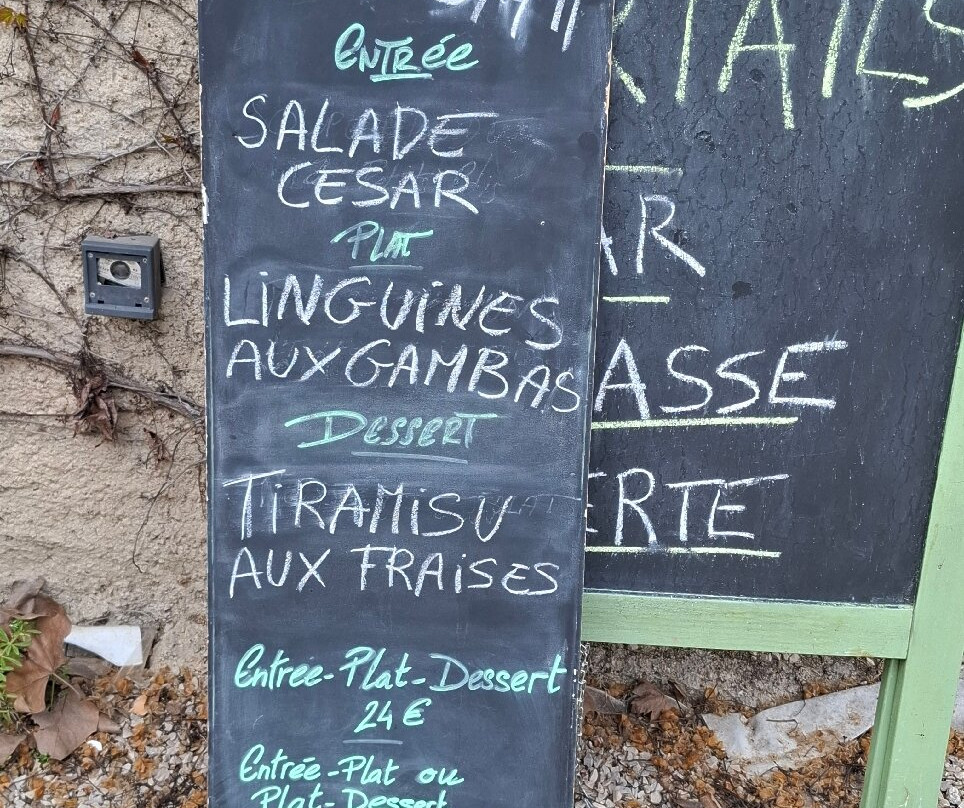 ENTRÉE
SALADE
CESAR
PLAT
LINGUINES
AUX GAMBAS
DESSERT
TIRAMISU
AUX FRAISES
Entrée-Plat-Dessert
24 €
Entrée-Plat ou
Plat-Dessert
TAILS
AR
ASSE
ERTE